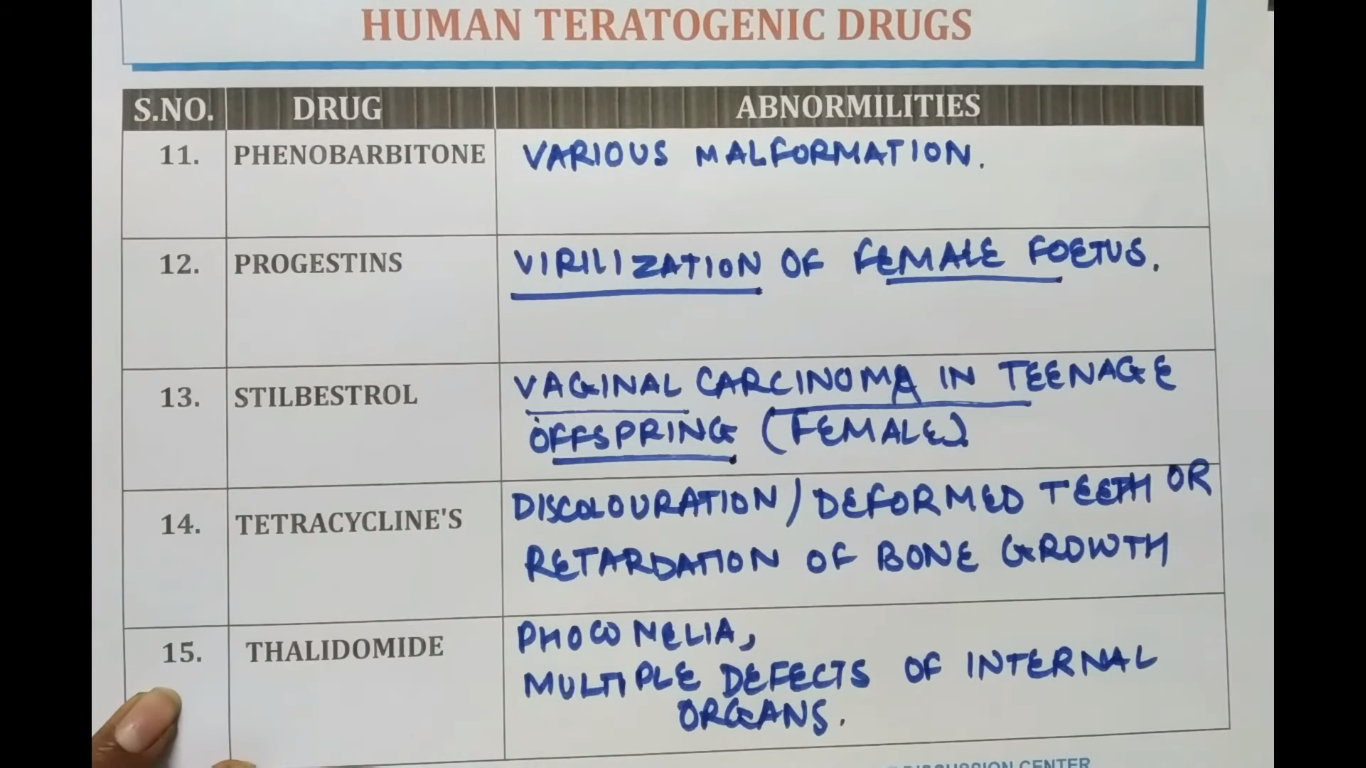 HUMAN TERATOGENIC DRUGS
S.NO. DRUG ABNORMILITIES
11. PHENOBARBITONE VARIOUS MALFORMATION.
12. PROGESTINS VIRILIZATION OF FEMALE FOETUS.
13. STILBESTROL VAGINAL CARCINOMA IN TEENAGE
OFFSPRING (FEMALE)
14. TETRACYCLINE'S DISCOLOURATION/DEFORMED TEETH OR
RETARDATION OF BONE GROWTH
15. THALIDOMIDE PHOCOMELIA,
MULTIPLE DEFECTS OF INTERNAL
ORGANS.
DISCUSSION CENTER